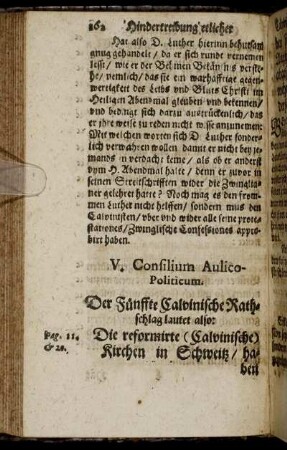 162 Hindertreibung etlicher
Hat also D. Luther hierinn behutsam
gnug gehandele / da er sich runde vernemen
lesst / wie er der Behmen Bekäntnis verste-
he / nemlich / das sie ein warhafftige gegen-
wertigkeit des Leibs vnd Bluts Christi im
Heiligen Abendmal gleuben vnd bekennen /
vnd bedingt sich darzu austrücklich / das
er ihre weise zu reden nicht wisse anzunemen:
Mit welchen worten sich D. Luther sonder-
lich verwahren wollen damit er nicht bey je-
mands in verdacht keme / als ob er anderst
vom H. Abendmal halte / denn er zuvor in
seinen Streitschrifften wider die Zwinglia-
ner gelehret hatte? Noch mag es den from-
men Luther nicht helffen / sondern mus den
Calvinisten / vber vnd wider alle seine prote-
stationes / Zwinglische Confessiones appro-
birt haben.
V. Consilium Aulico-
Politicum.
Der Fünffte Calvinische Rath-
schlag lautet also:
Pag. 11. Die reformirte (Calvinische)
& 20. Kirchen in Schweitz / ha-
ben